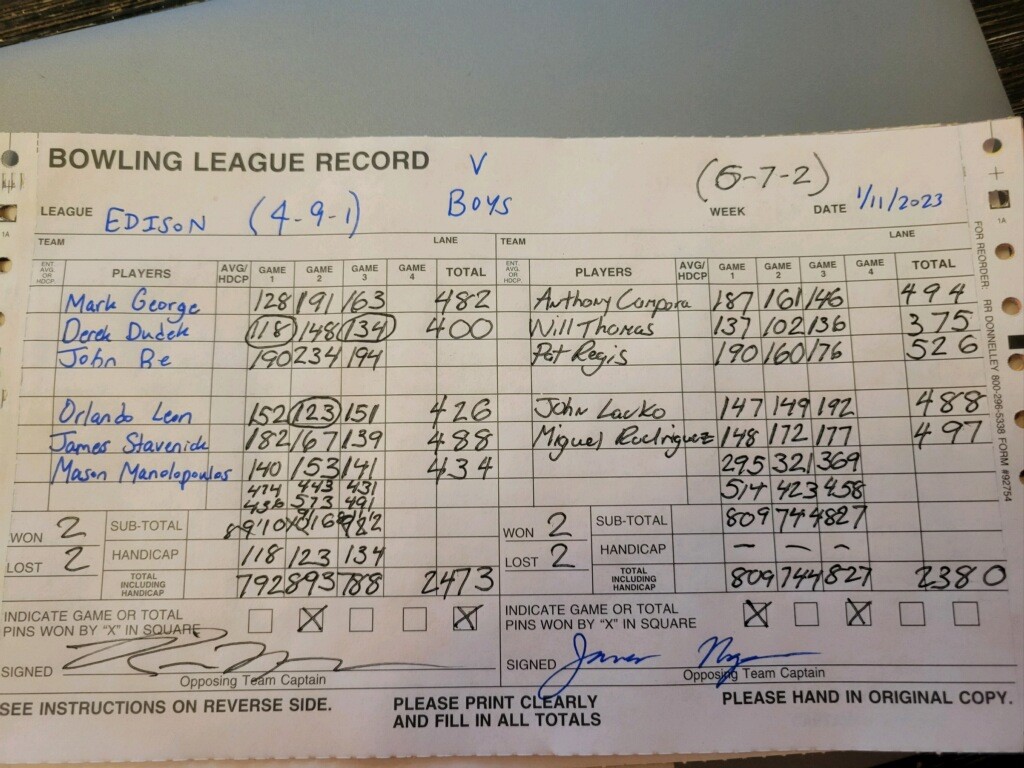 BOWLING LEAGUE RECORD V (6-7-2)
LEAGUE EDISON (4-9-1) BOYS WEEK DATE 1/11/2023
TEAM LANE TEAM LANE
ENT. AVG. OR HDCP. PLAYERS AVG/ HDCP GAME 1 GAME 2 GAME 3 GAME 4 TOTAL ENT. AVG. OR HDCP. PLAYERS AVG/ HDCP GAME 1 GAME 2 GAME 3 GAME 4 TOTAL
Mark George 128 191 163 482 Anthony Campora 187 161 146 494
Derek Dudek 118 148 134 400 Will Thomas 137 102 136 375
John Be 190 234 194 Pat Regis 190 160 176 526
Orlando Leon 152 123 151 426 John Lavko 147 149 192 488
James Stavenick 182 167 139 488 Miguel Rodriguez 148 172 177 497
Mason Manolopoulos 140 153 141 434 295 321 369
474 443 431 514 423 458
436 573 491
WON 2 SUB-TOTAL 910 1016 WON 2 SUB-TOTAL 809 744 827
LOST 2 HANDICAP 118 123 134 LOST 2 HANDICAP – – –
TOTAL INCLUDING HANDICAP 792 893 788 2473 TOTAL INCLUDING HANDICAP 809 744 827 2380
INDICATE GAME OR TOTAL PINS WON BY "X" IN SQUARE X X INDICATE GAME OR TOTAL PINS WON BY "X" IN SQUARE X X
SIGNED SIGNED James
Opposing Team Captain Opposing Team Captain
SEE INSTRUCTIONS ON REVERSE SIDE. PLEASE PRINT CLEARLY AND FILL IN ALL TOTALS PLEASE HAND IN ORIGINAL COPY.
FOR REORDER: RR DONNELLEY 800-296-5338 FORM #92754
1A
1A